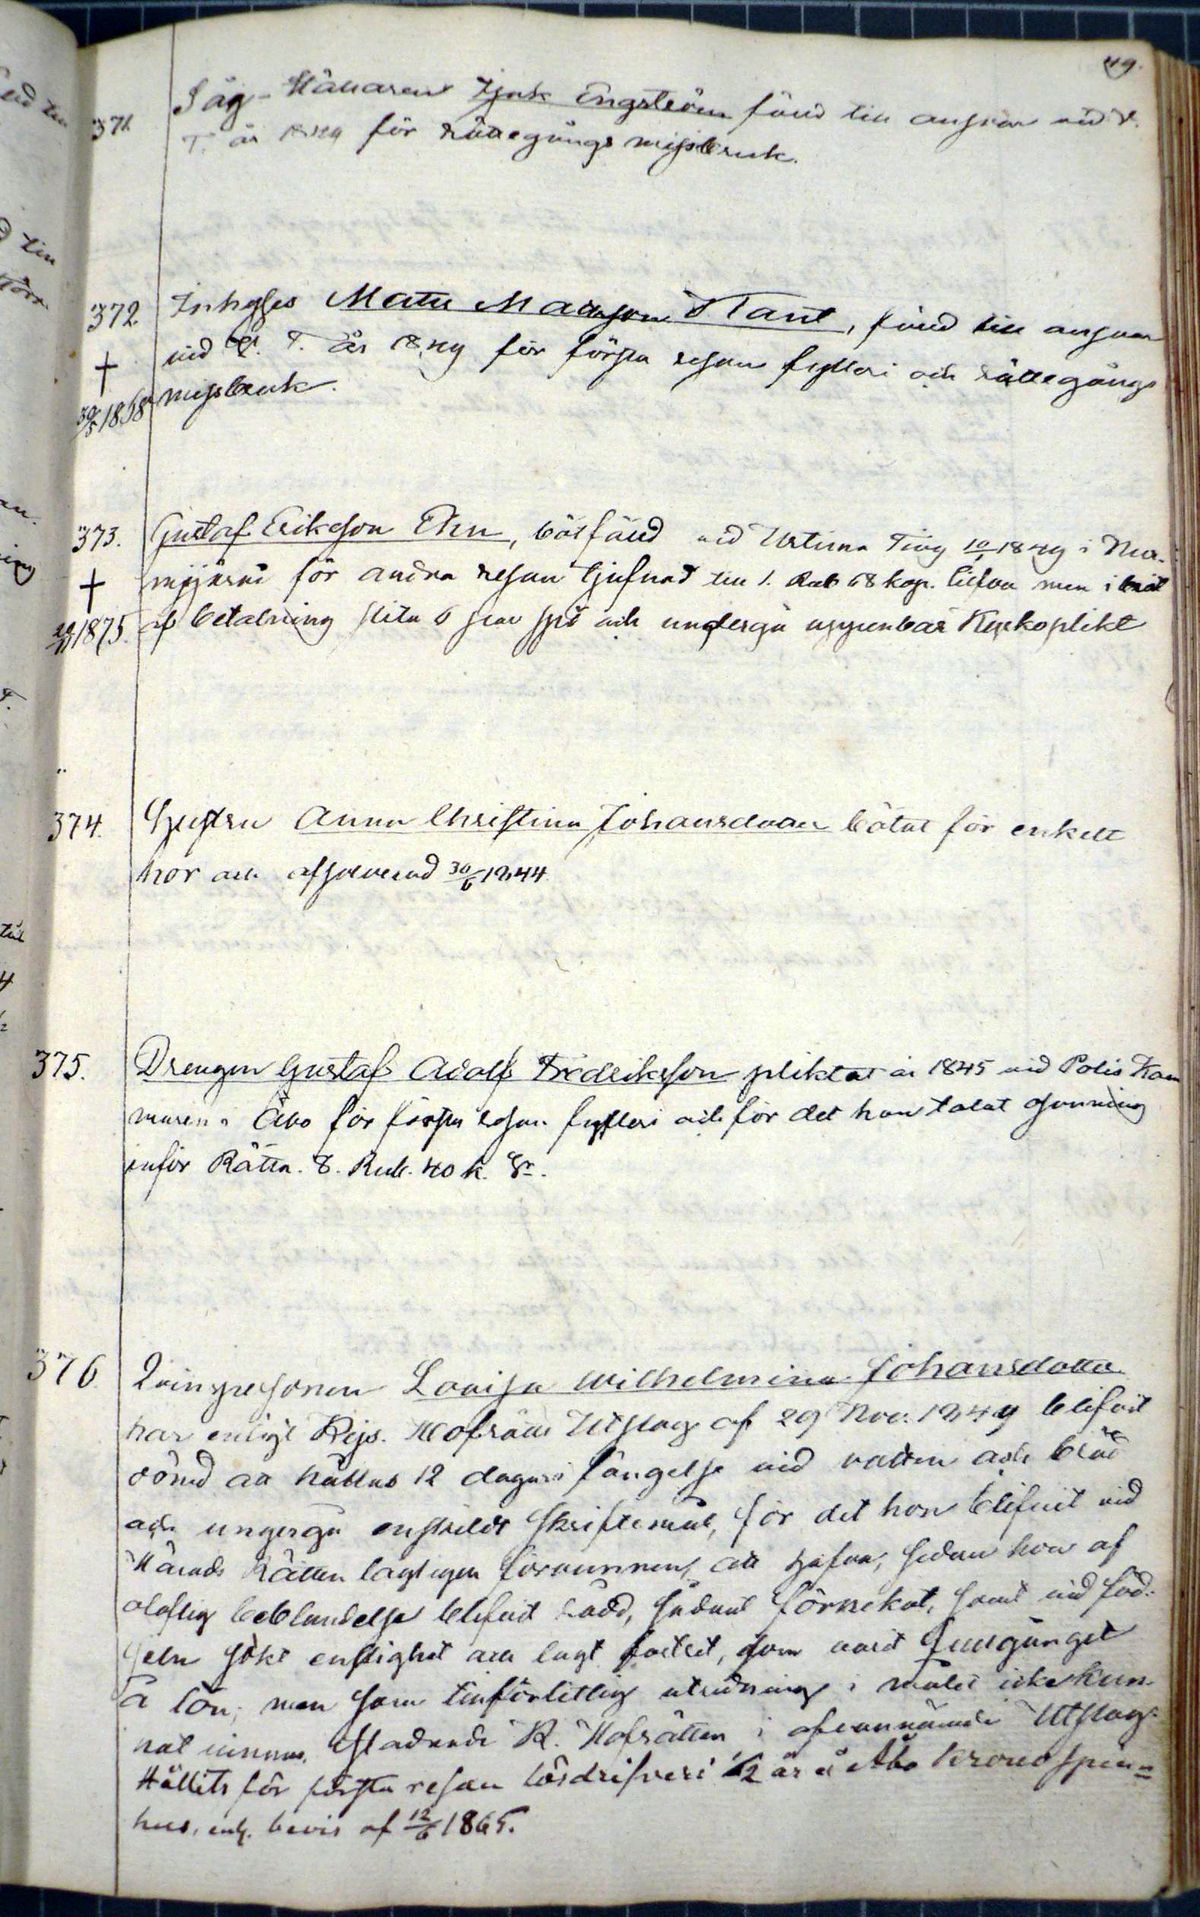 119.
371. Såg-Ställaren Isak Engström fäld till ansvar vid V.
T. år 1849 för Rättegångs missbruk.
372. Inhyses Matts Mattsson Stark, fäld till ansvar
† vid V. T. år 1849 för första resan fylleri och rättegångs
1868 missbruk.
373. Gustaf Eriksson Ehn, bötfäld vid Urtima Ting 1849 i
† för andra resan tjufnad till 1. Rub 68 kop. Silfver men i brist
1875. af betalning slita 6 par spö och undergå uppenbar Kyrkoplikt
374. Hustru Anna Christina Johansdotter bötat för enkelt
hor och absolverad 30/6 1844.
375. Drengen Gustaf Adolf Fredriksson pliktat år 1845 vid Polis Kam
maren i Åbo för första resan fylleri och för det han talat osanning
inför Rätta. 8. Rub. 40 k. Sr.
376. Qvinspersonen Lovisa Wilhelmina Johansdotter
har enligt Kejs. Hofrätts Utslag af 29 Nov. 1849 blifvit
dömd att hållas 12 dagar i fängelse vid vatten och bröd
och undergå enskildt Skriftemål, för det hon blifvit vid
Härads Rätten lagligen förvunnen, att hafva, sedan hon af
olaflig beblandelse blifvit rådd, sådant förnekat, samt vid föd-
seln sökt enslighet och lagt fostret, som varit fullgånget
å lön, men som tillförlitlig utredning i målet icke kun-
nat vinnas, K. Hofrätten i ofvannämnde Utslag.
Hållits för första resan lösdrifveri 1/2 år å Åbo Kronospinn-
hus, enl. bevis af 12/6 1865.